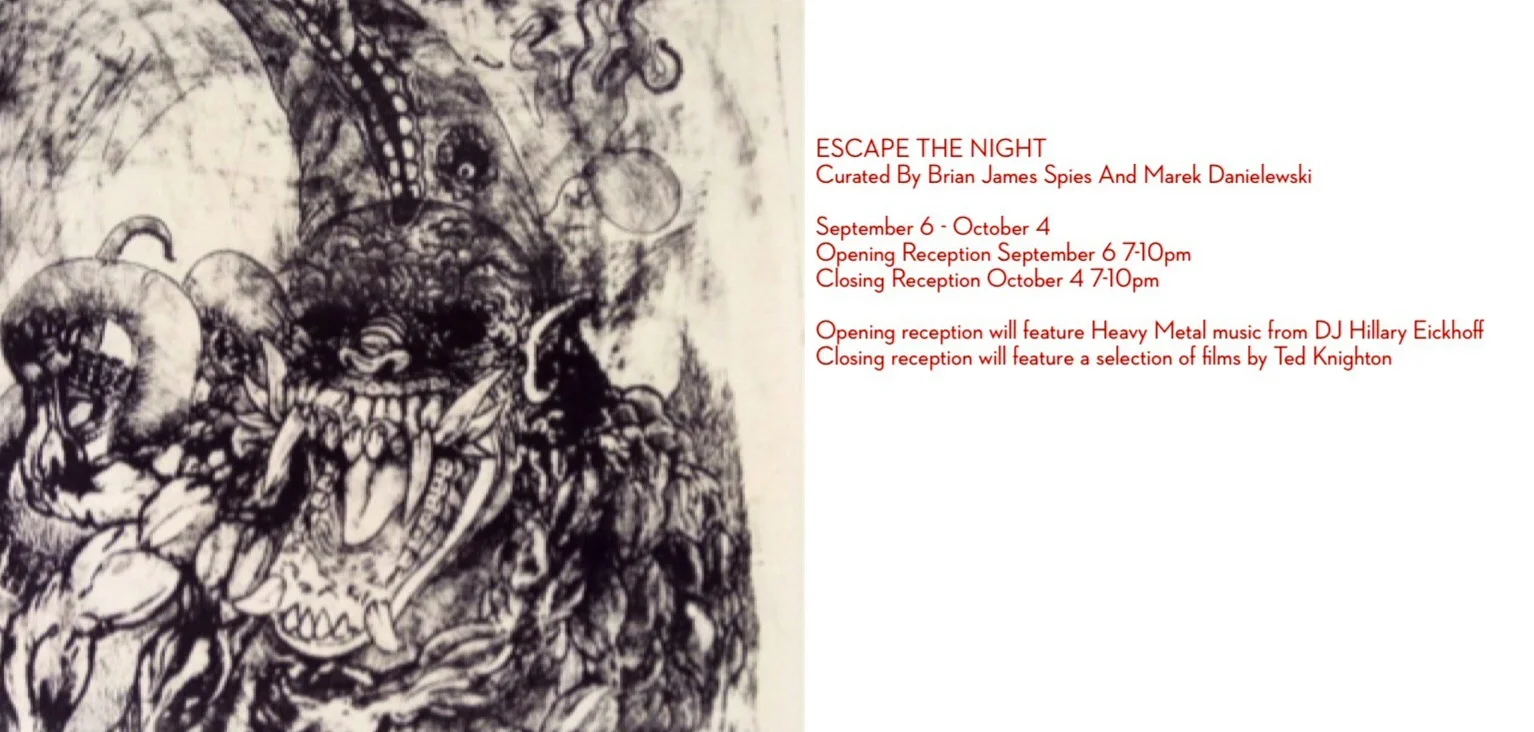 ESCAPE THE NIGHT
Curated By Brian James Spies And Marek Danielewski
September 6 - October 4
Opening Reception September 6 7-10pm
Closing Reception October 4 7-10pm
Opening reception will feature Heavy Metal music from DJ Hillary Eickhoff
Closing reception will feature a selection of films by Ted Knighton